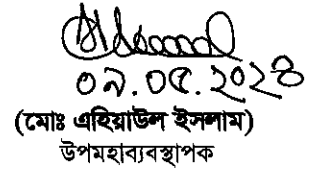 ০৯.০৫.২০২৪
(মোঃ এহিয়াউল ইসলাম)
উপমহাব্যবস্থাপক